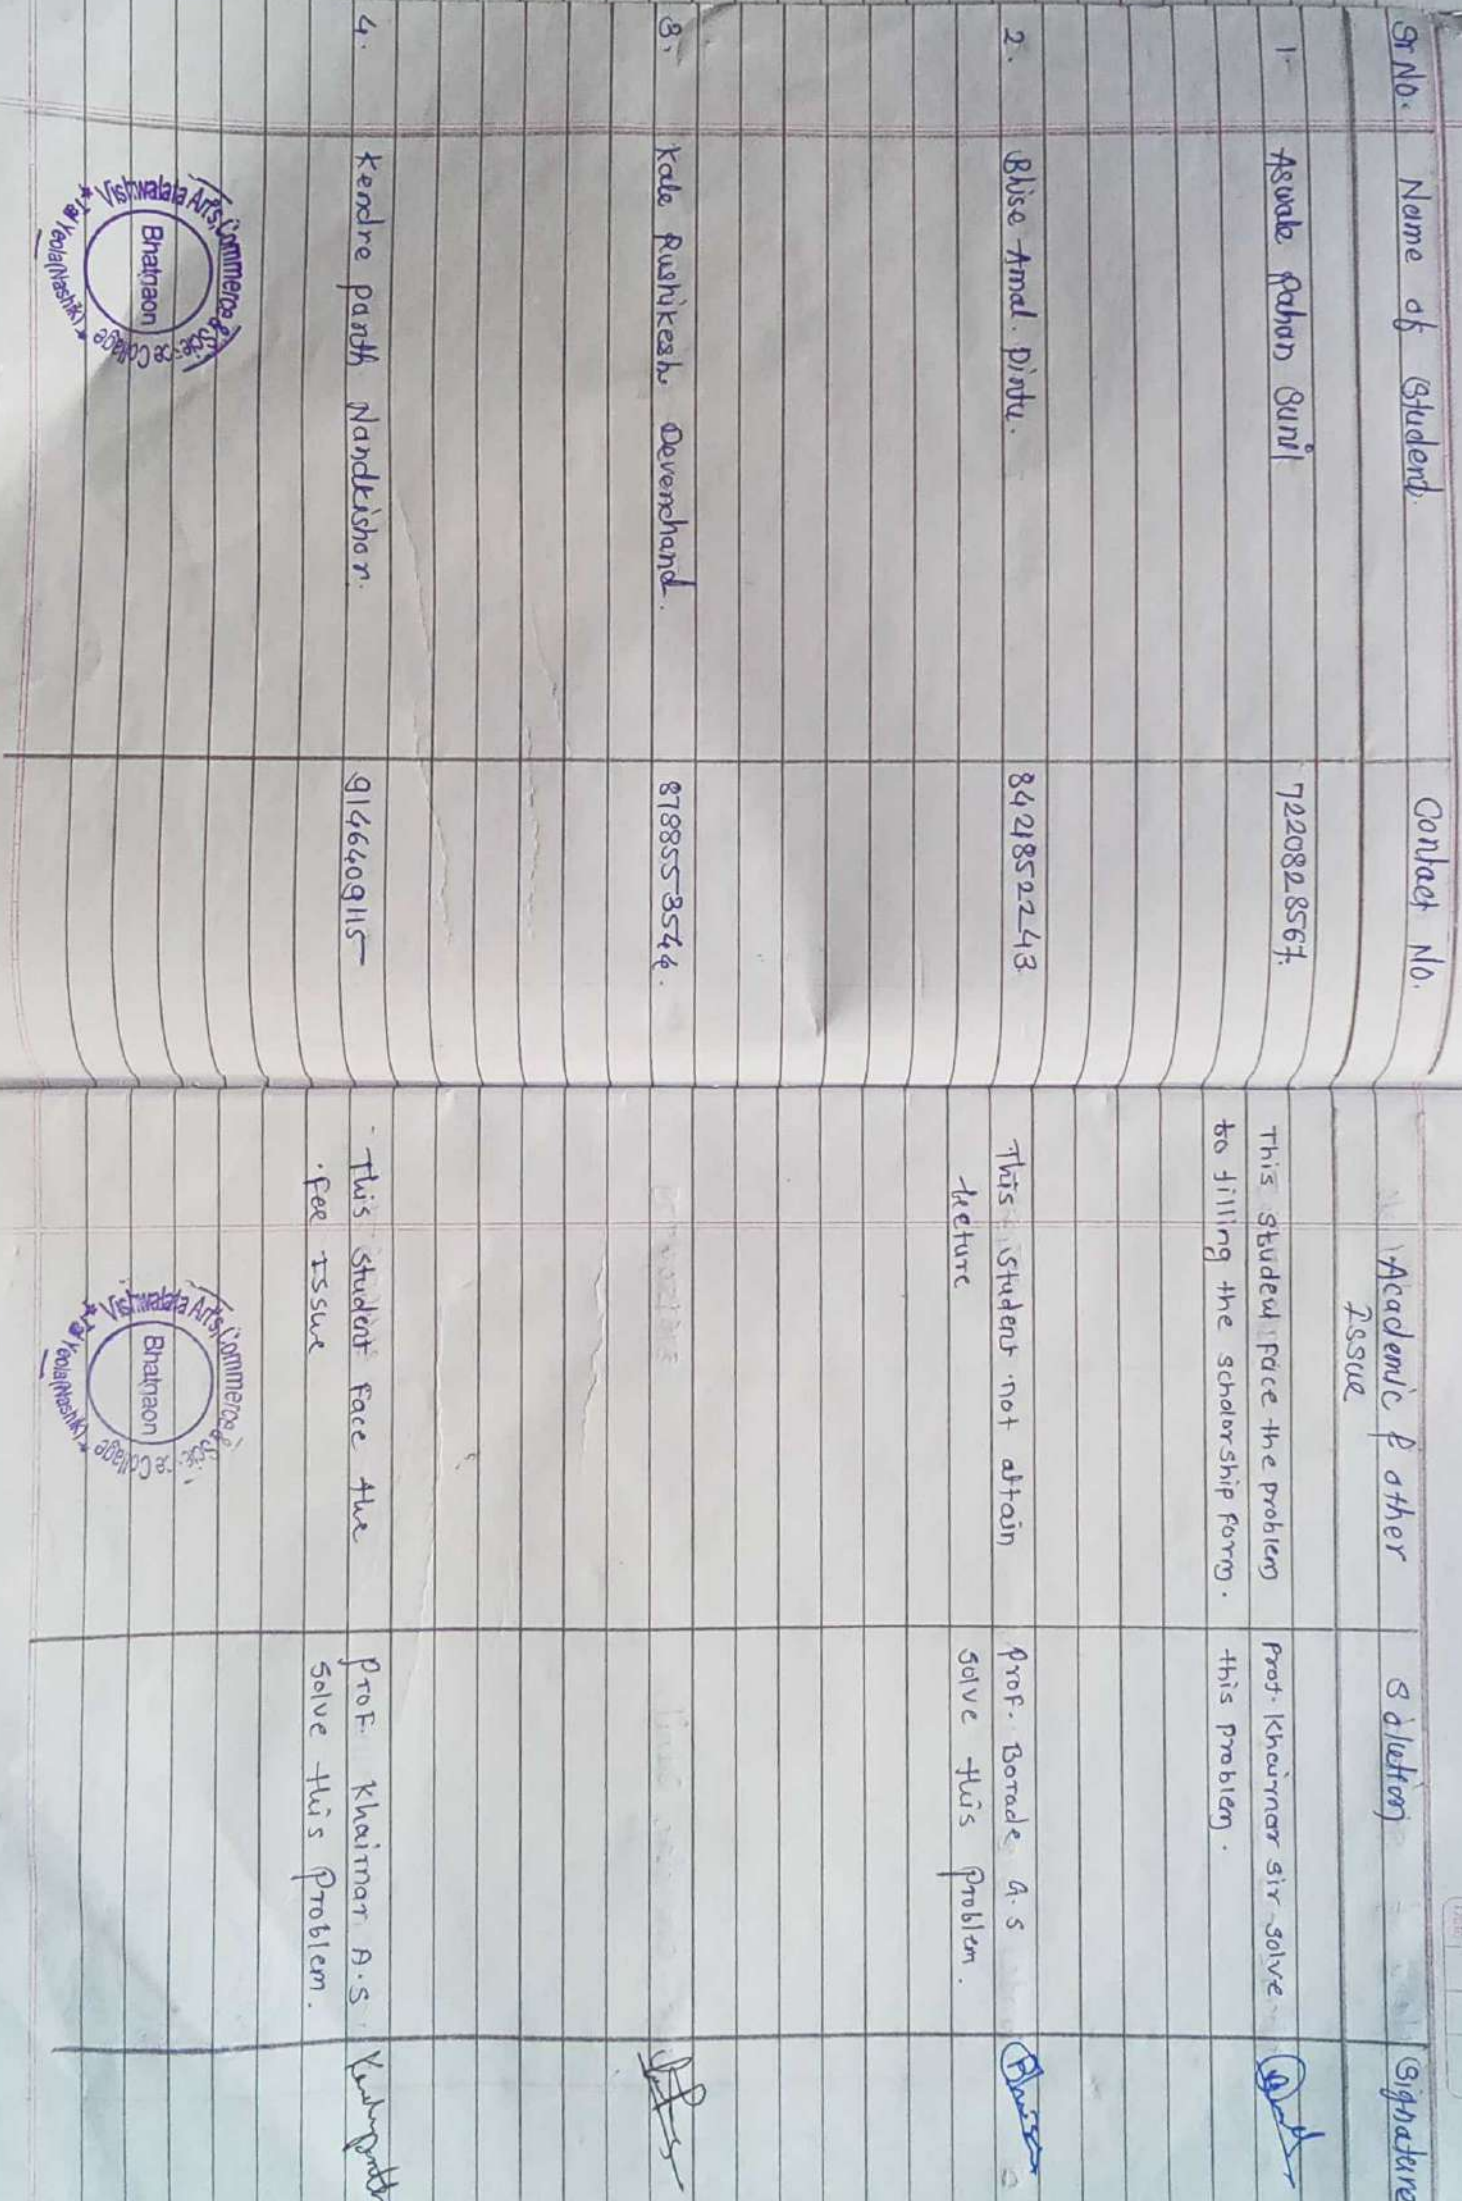 Sr No. Name of Student. Contact No. Academic & other Solution Signature
Issue
1. Aswale Pahan Sunil 7220828567. This student face the problem Prof. Khairnar sir solve
to filling the scholorship form. this problem.
2. Bhise Amal. Pintu. 8421852243 This student not attain Prof. Borade G.S
lecture solve this problem.
3. Kale Rushikesh Devenchand. 8788553544.
4. Kendre parth Nandkishor. 9146409115 This student face the Prof. Khairnar A.S
fee issue solve this problem.
Vishwalata Arts, Commerce & Science Collage
Bhatgaon
* Tal Yeola (Nashik) *
Vishwalata Arts, Commerce & Science Collage
Bhatgaon
* Tal Yeola (Nashik) *